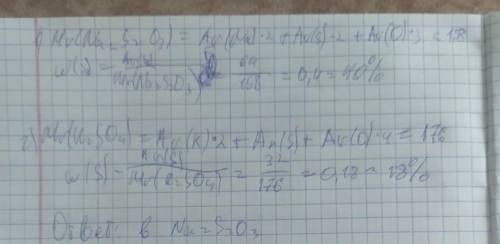 1) Mr(Na₂S₂O₃) = Ar(Na)·2 + Ar(S)·2 + Ar(O)·3 = 158
w(S) = Ar(S) / Mr(Na₂S₂O₃) = 64 / 158 = 0,4 = 40%
2) Mr(K₂SO₄) = Ar(K)·2 + Ar(S) + Ar(O)·4 = 176
w(S) = Ar(S) / Mr(K₂SO₄) = 32 / 176 = 0,18 = 18%
Ответ: в Na₂S₂O₃